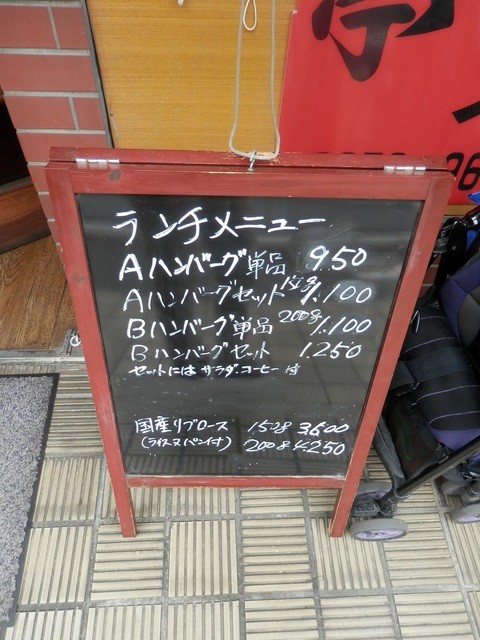 亭
ランチメニュー
Aハンバーグ 単品 950
Aハンバーグセット 150g 1.100
Bハンバーグ単品 200g 1.100
Bハンバーグセット 1.250
セットには サラダ.コーヒー 付
国産リブロース 150g 3600
(ライス又パン付) 200g 4.250